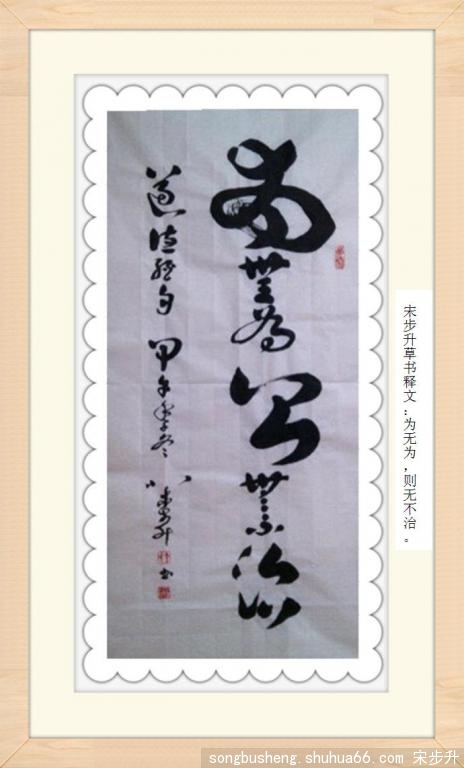 為無為
则無不治
道德经句 甲午季冬 宋步升 书
宋步升草书释文:为无为,则无不治。
songbusheng.shuhua66.com 宋步升